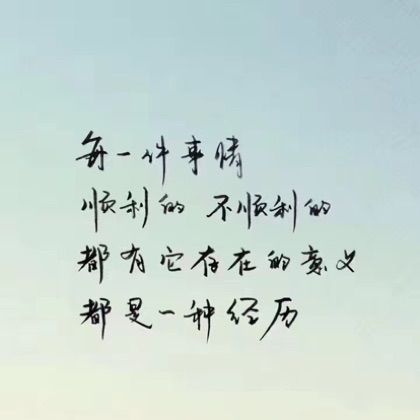 每一件事情
顺利的 不顺利的
都有它存在的意义
都是一种经历